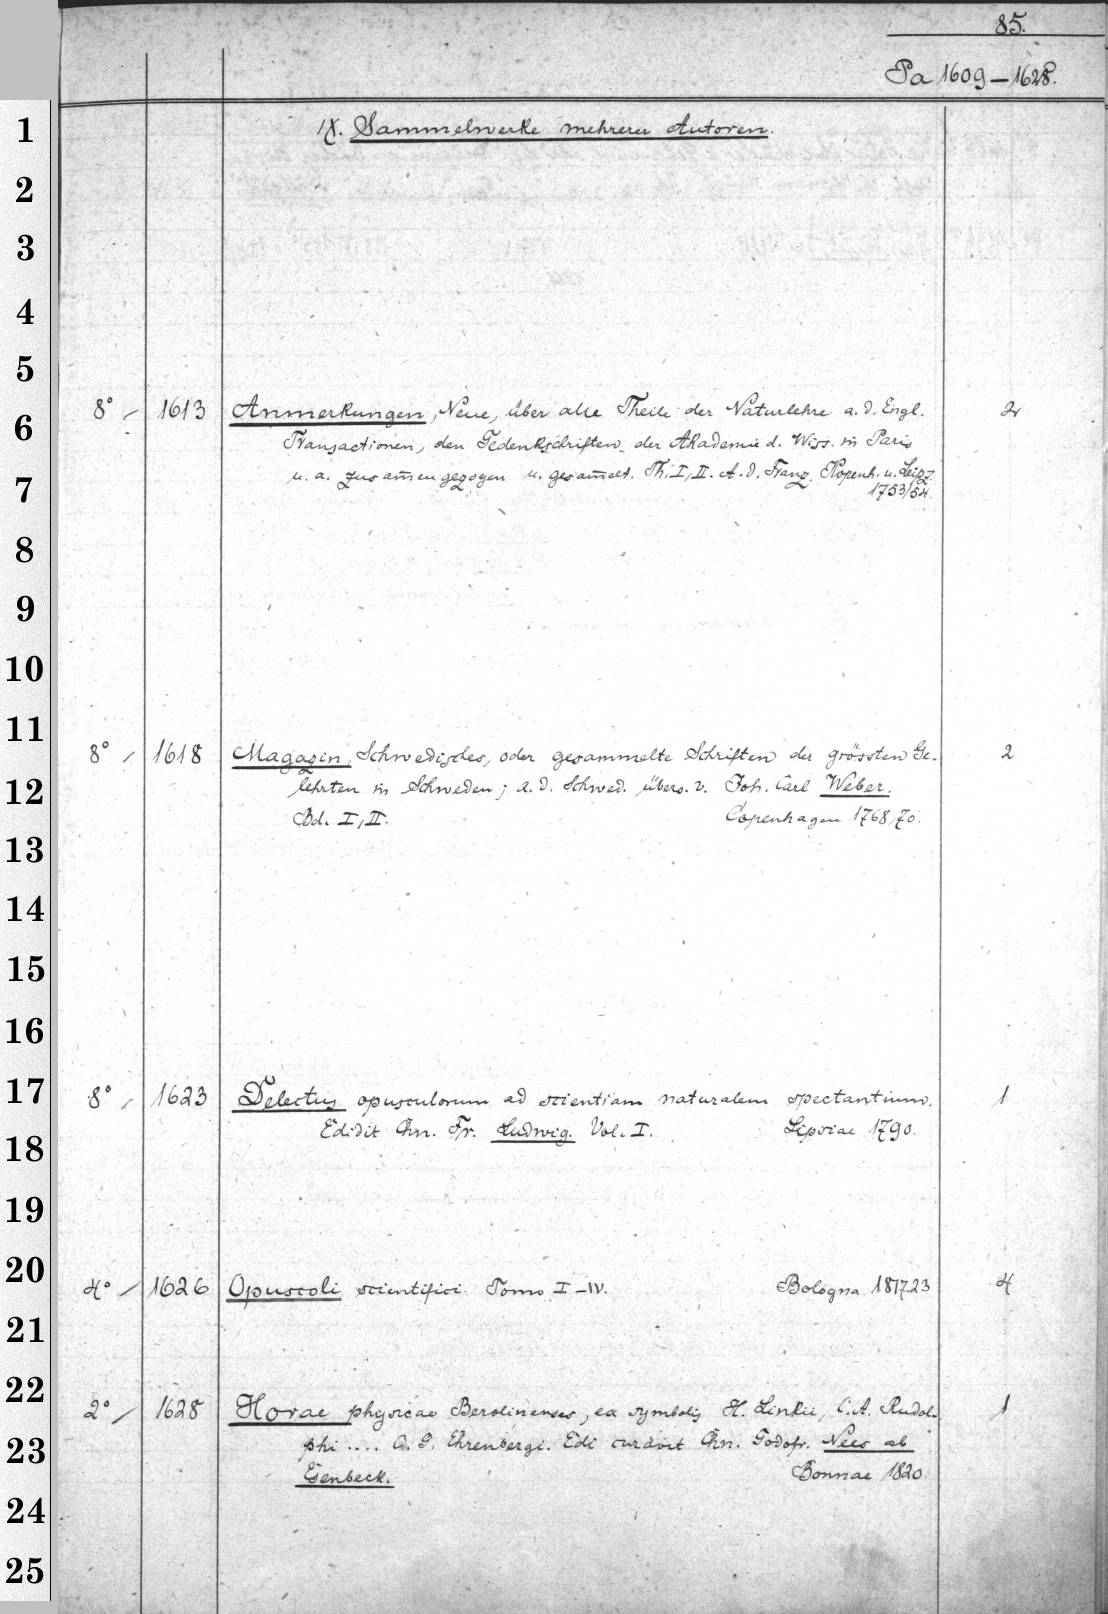 85.
Pa 1609–1628.
IX. Sammelwerke mehrerer Autoren.
8° / 1613 Anmerkungen, Neue, über alle Theile der Naturlehre a. d. Engl. 2
Transactionen, den Gedenkschriften der Akademie d. Wiss. in Paris
u. a. zusam̄engezogen u. gesam̄elt. Th. I, II. A. d. Franz. Kopenh. u. Leipz.
1753/54.
8° / 1618 Magazin, Schwedisches, oder gesammelte Schriften der grössten Ge- 2
lehrten in Schweden; a. d. Schwed. übers. v. Joh. Carl Weber.
Bd. I, II. Copenhagen 1768/70.
8° / 1623 Delectus opusculorum ad scientiam naturalem spectantium. 1
Edidit Chn. Fr. Ludwig. Vol. I. Lipsiae 1790.
4° / 1626 Opuscoli scientifici Tomo I–IV. Bologna 1817/23 4
2° / 1628 Horae physicae Berolinenses, ex symbolis H. Linkii, C. A. Rudol- 1
phi .... C. G. Ehrenbergi. Edi curavit Chn. Godofr. Nees ab
Esenbeck. Bonnae 1820.
1
2
3
4
5
6
7
8
9
10
11
12
13
14
15
16
17
18
19
20
21
22
23
24
25